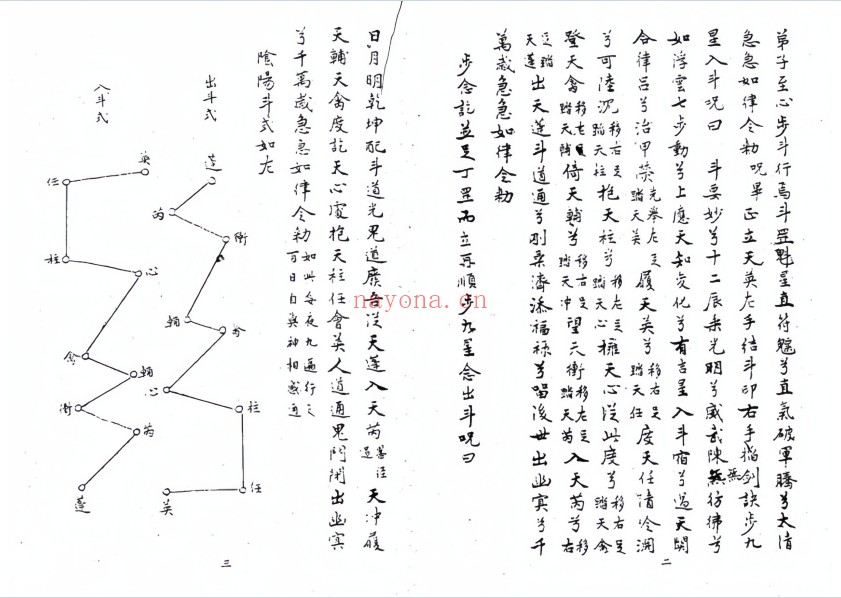 弟子至心步斗行焉斗罡魁星直符魒兮直氣破軍騰兮大清
急急如律令勅 咒畢 正立天英左手結斗印右手搯劍訣步九
星入斗咒曰 斗要妙兮十二辰乘光明兮威武陳無彷彿兮
如浮雲七步動兮上應天知变化兮有吉星入斗宿兮過天關
合律吕兮治甲英先举左足踏天英履天英兮移右足踏天任度天任清冷淵
兮可陸沉移右足踏天柱抱天柱兮移左足踏天心擁天心從此度兮移右足踏天禽
登天禽移左足踏天輔倚天輔兮移右足踏天冲望天衝移左足踏天芮入天芮兮移右
足踏天蓬出天蓬斗道通兮剛柔濟添福祿兮留後世出幽冥兮千
萬歲急急如律令勅
步念訖並足丁罡而立再順步九星念出斗咒曰
二
日月明乾坤配斗道光鬼道廢吾從天蓬入天芮善徑道天冲履
天輔天禽度訖天心處抱天柱任會英人道通鬼門閉出幽冥
兮千萬歲急急如律令勅如此每夜九遍行之百日自與神相感通
陰陽斗式如左
出斗式
蓬
芮
衝
輔
禽
心
柱
任
英
入斗式
英
任
柱
心
禽
輔
衝
芮
蓬
三
nayona.cn